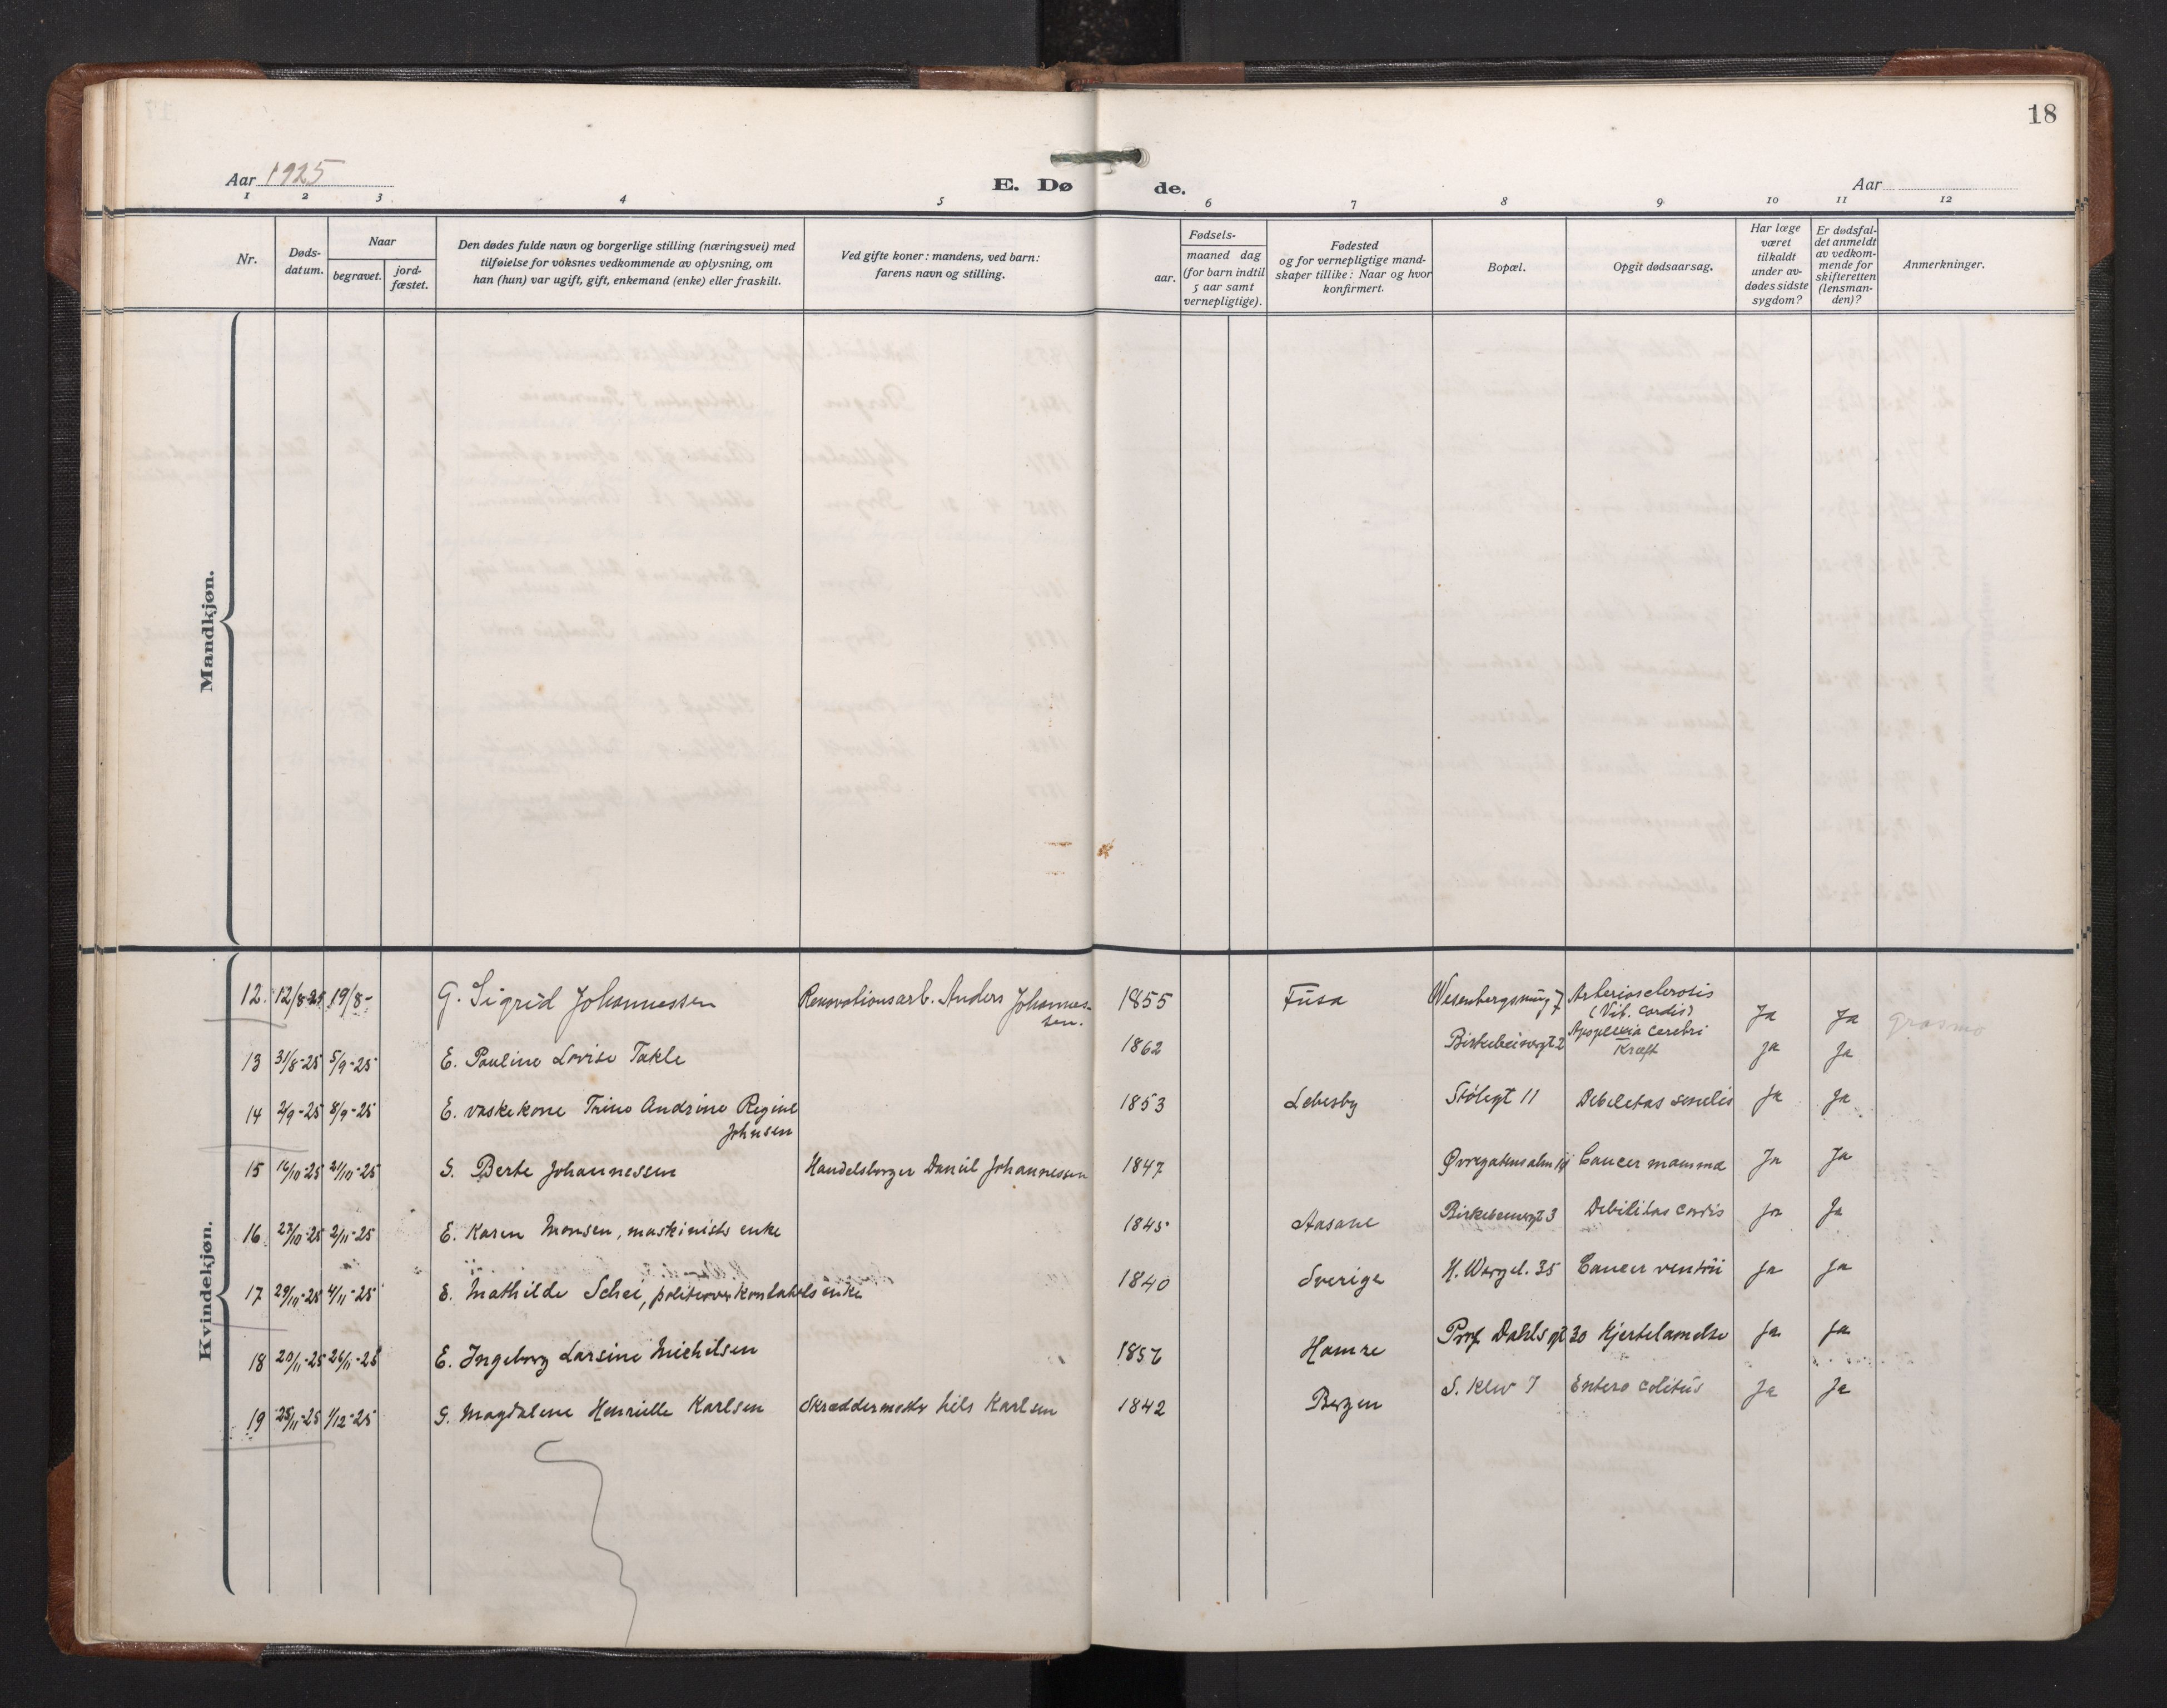 18
Aar 1925
E. Dø de.
Aar
1 2 3 4 5 6 7 8 9 10 11 12
Nr.
Døds-
datum.
Naar
begravet.
jord-
fæstet.
Den dødes fulde navn og borgerlige stilling (næringsvei) med
tilføielse for voksnes vedkommende av oplysning, om
han (hun) var ugift, gift, enkemand (enke) eller fraskilt.
Ved gifte koner: mandens, ved barn:
farens navn og stilling.
Fødsels-
aar.
maaned dag
(for barn indtil
5 aar samt
vernepligtige).
Fødested
og for vernepligtige mand-
skaper tillike: Naar og hvor
konfirmert.
Bopæl.
Opgit dødsaarsag.
Har læge
været
tilkaldt
under av-
dødes sidste
sygdom?
Er dødsfal-
det anmeldt
av vedkom-
mende for
skifteretten
(lensman-
den)?
Anmerkninger.
Mandkjøn.
Kvindekjøn.
12. 12/8-25 19/8- G. Sigrid Johannessen Renovationsarb. Anders Johannes- 1855 Fusa 7 Arteriosclerosis Ja Ja
sen. (Vit. cordis)
13 31/8-25 5/9-25 E. Pauline Lovise Takle 1862 Birkebeinergt 2 Apoplexia cerebri Ja Ja
Kræft
14 2/9-25 8/9-25 E. vaskekone Trine Andrine Regine 1853 Lebesby Stølegt 11 Debeletas senelis Ja Ja
Johnsen
15 16/10-25 21/10-25 G. Berte Johannessen Handelsborger Daniel Johannessen 1847 Øvregatensalm Cancer mamma Ja Ja
16 27/10-25 2/11-25 E. Karen Monsen, maskinists enke 1845 Aasane Birkebeinergt 3 Debilitas cordis Ja Ja
17 29/10-25 4/11-25 E. Mathilde Schei, enke 1840 Sverige H. Wergel. 35 Cancer ventrii Ja Ja
18 20/11-25 26/11-25 E. Ingeborg Larsine Michelsen 1857 Hamre Prof Dahls gt 30 Hjertelamelse Ja Ja
19 25/11-25 1/12-25 G. Magdalene Henrielle Karlsen Skræddermester Nels Karlsen 1842 Bergen S. Klev 7 Entero colitus Ja Ja